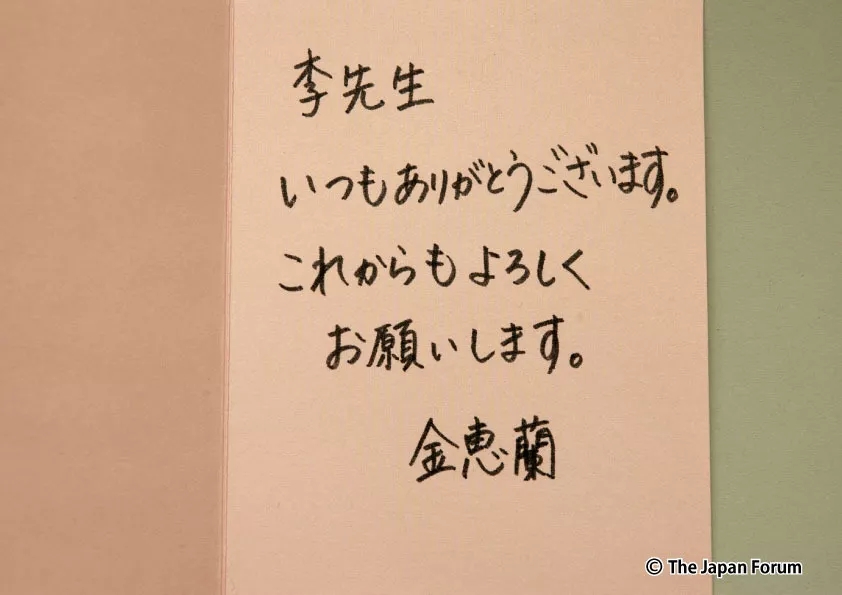 李先生
いつもありがとうございます。
これからもよろしく
お願いします。
金恵蘭
© The Japan Forum